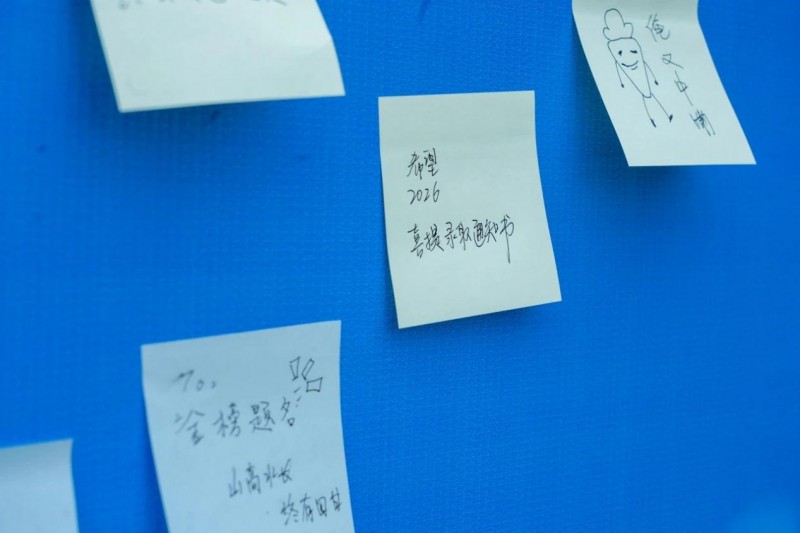 俺
又
中
希望
2026
喜提录取通知书
To:
金榜题名
山高水长
终有回甘